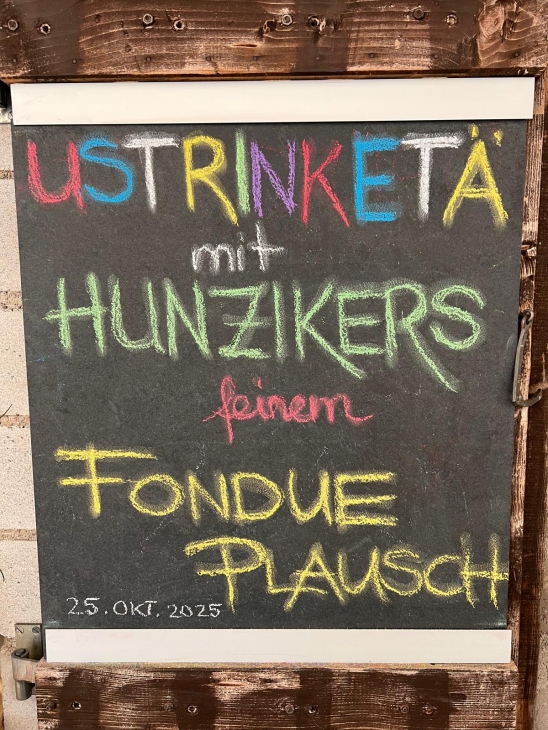 USTRINKETÄ
mit
HUNZIKERS
feinem
FONDUE
PLAUSCH
25. OKT. 2025